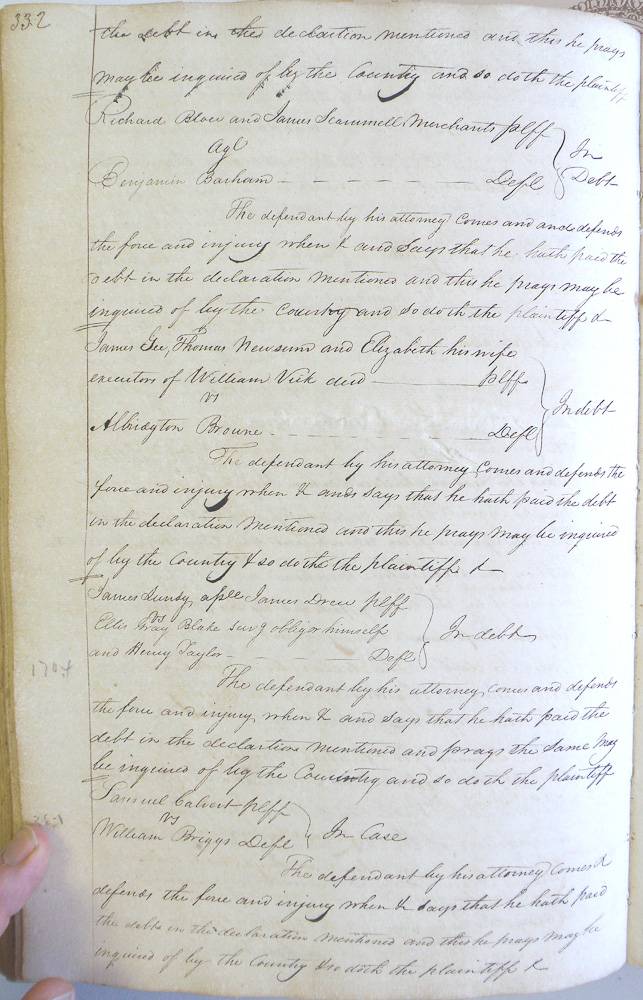 332
the debt in the declartion mentioned and this he prays
may be inquired of by the Country and so doth the plaintiff
Richard Blow and James Scammell Merchants plff
agt
In
Benjamin Barham Deft
Debt
The defendant by his attorney Comes and and defends
the force and injury when & and Says that he hath paid the
debt in the declaration mentioned and this he prays may be
inquired of by the Country and so doth the plaintiff &
James Gee, Thomas Newsum and Elizabeth his wife
executors of William Vick decd plffs
vs
In debt
Albridgton Browne Deft
The defendant by his attorney Comes and defends the
force and injury when & and says that he hath paid the debt
in the declaration mentioned and this he prays may be inquired
of by the Country & so doth the plaintiff &
James Lundy, assee James Drew plff
vs
Ellis Gray Blake surg obligor himself
In debt
and Henry Taylor Deft
The defendant by his attorney, comes and defends
the force and injury, when & and says that he hath paid the
debt in the declartion mentioned and prays the same may
be inquired of by the Country and so doth the plaintiff
Samuel Calvert plff
vs
In Case
William Briggs Deft
The defendant by his attorney Comes &
defends the force and injury when & says that he hath paid
the debt in the declaration mentioned and this he prays may be
inquired of by the Country & so doth the plaintiff &